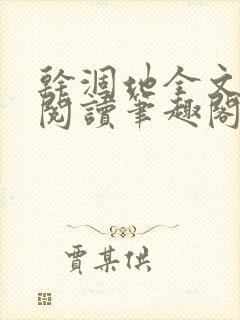 乾涸地全文
閱讀筆趣閣
賈某供